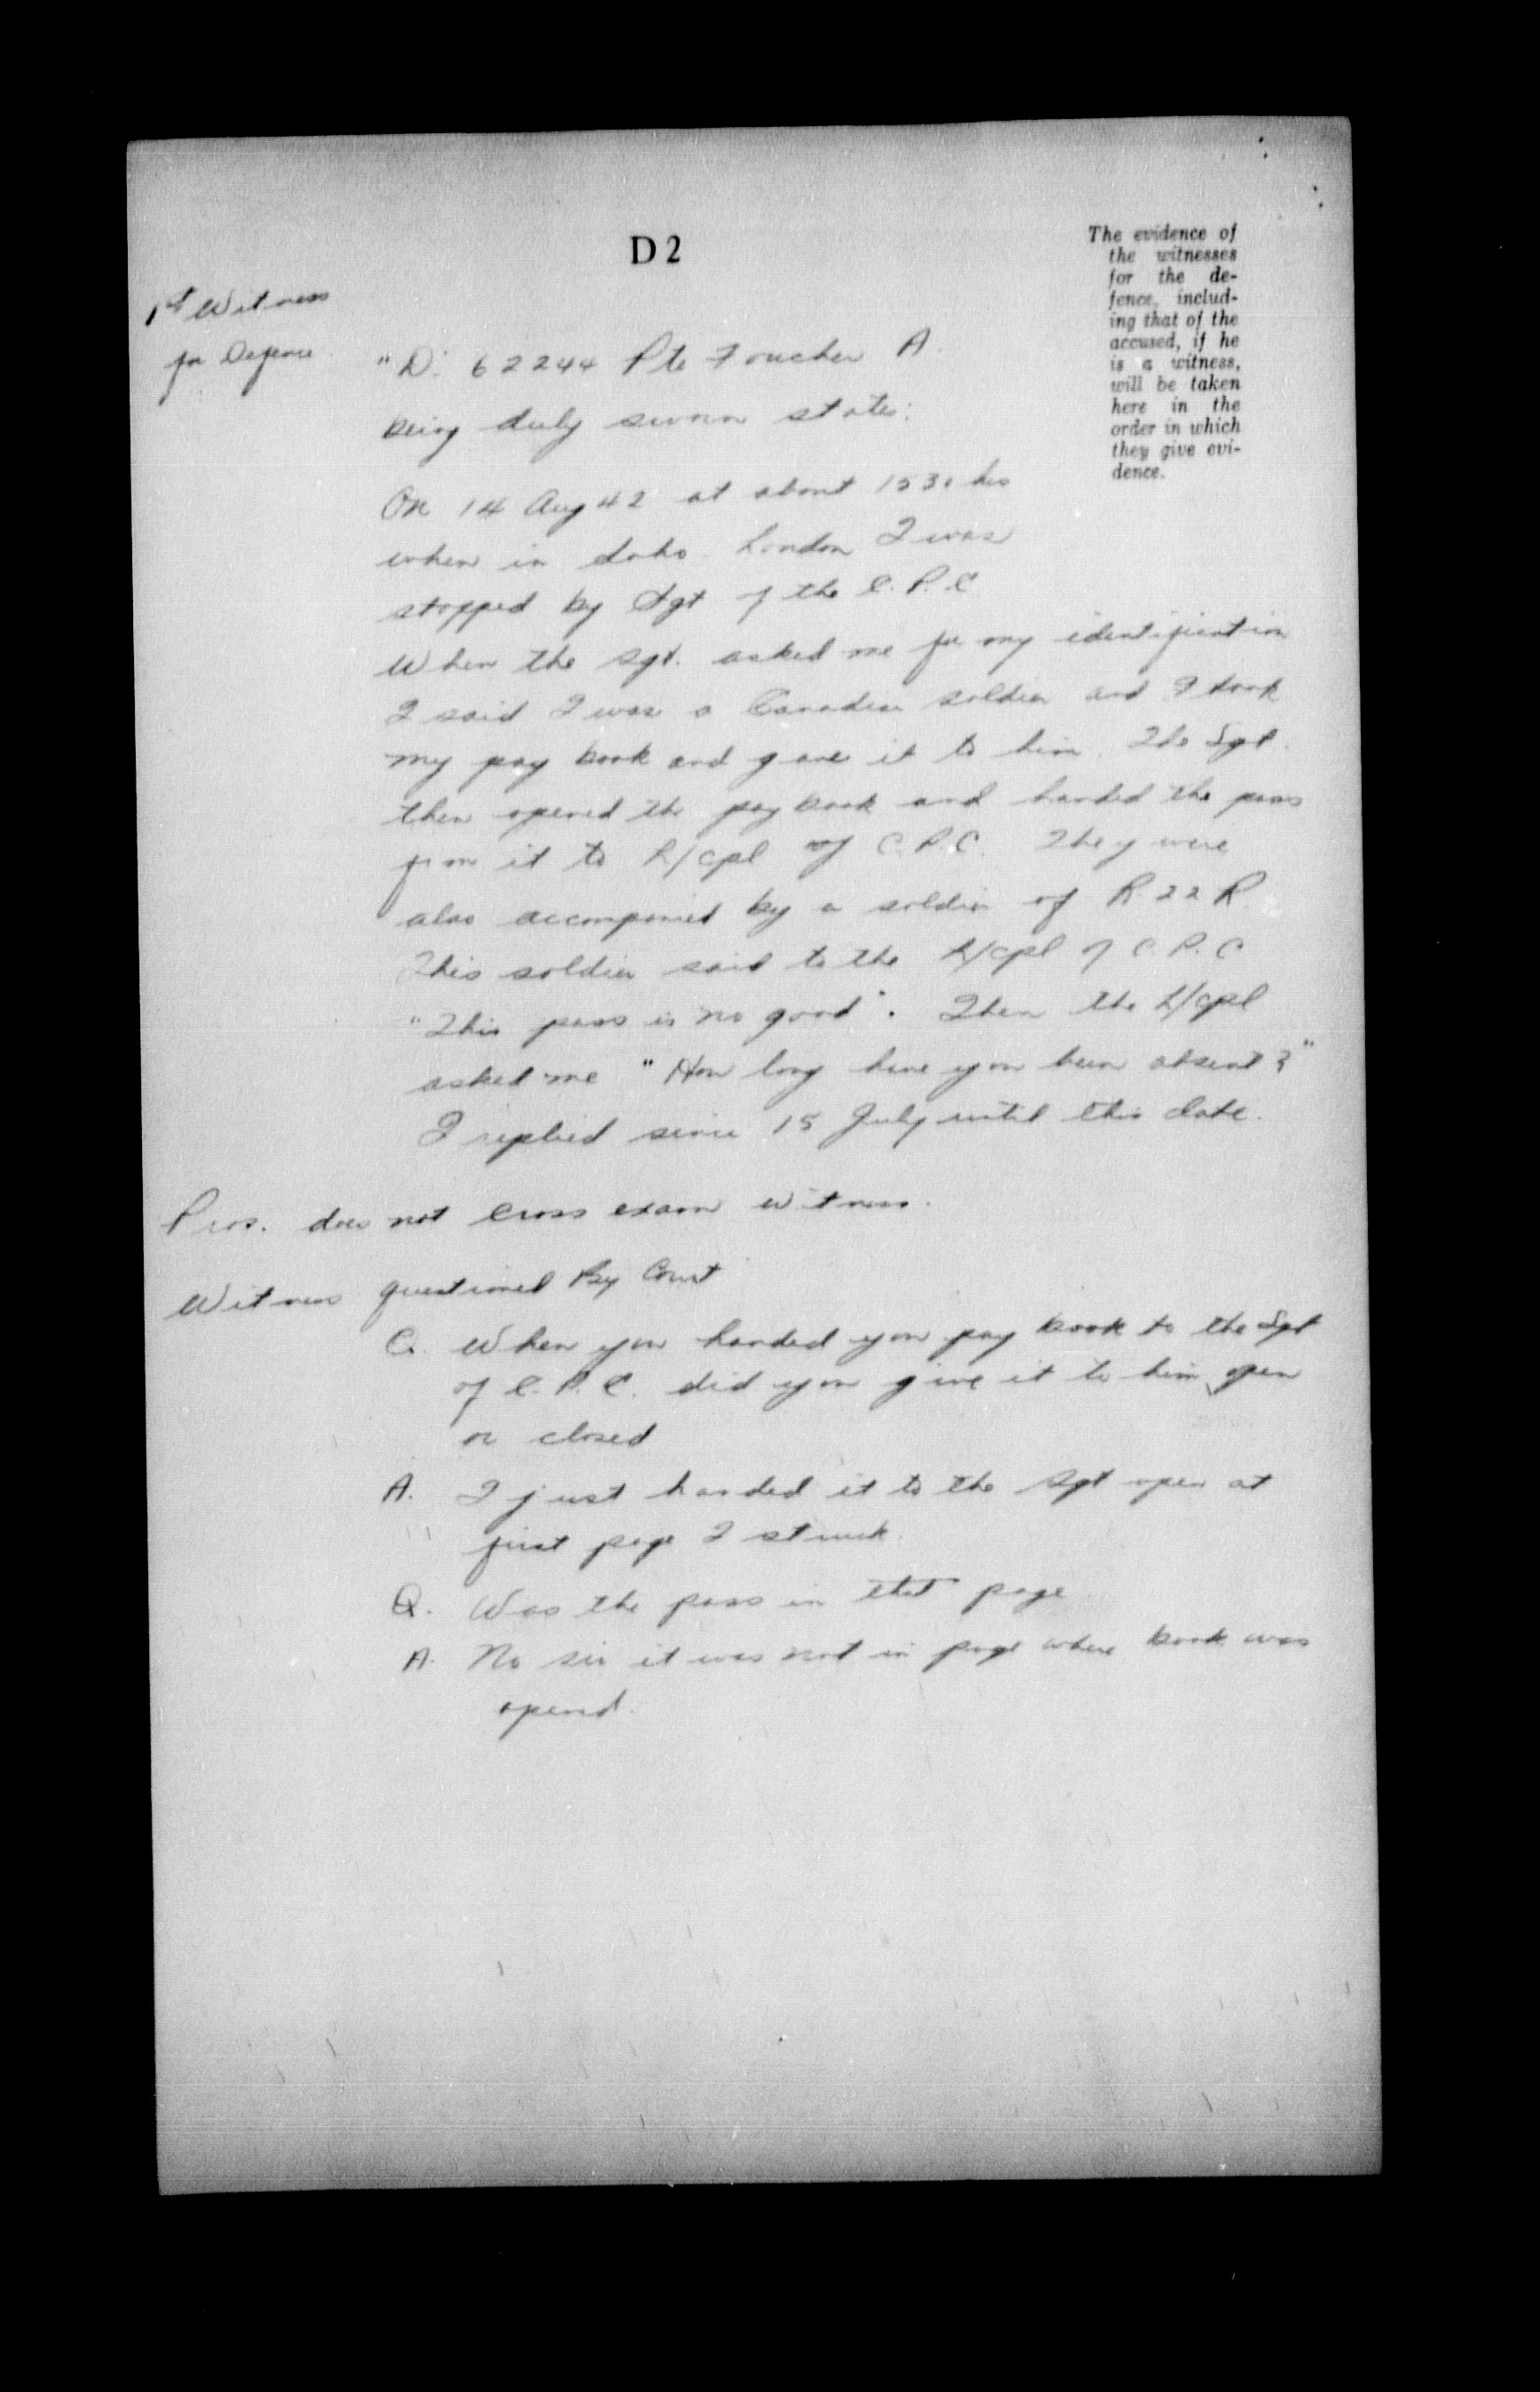 D 2
The evidence of
the witnesses
for the de-
fence, includ-
ing that of the
accused, if he
is a witness,
will be taken
here in the
order in which
they give evi-
dence.
1st Witness
for Defence
"D. 62244 Pte Foucher A.
being duly sworn states:
On 14 Aug 42 at about 1530 hrs
when in Soho London I was
stopped by Sgt of the C.P.C
When the Sgt. asked me for my identification
I said I was a Canadian soldier and I took
my pay book and gave it to him. The Sgt.
then opened the pay book and handed the pass
from it to L/Cpl of C.P.C. They were
also accompanied by a soldier of R.22 R.
This soldier said to the L/Cpl of C.P.C
"This pass is no good". Then the L/Cpl
asked me "How long have you been absent?"
I replied since 15 July until this date.
Pros. does not cross exam witness.
Witness questioned By Court
Q. When you handed your pay book to the Sgt
of C.P.C. did you give it to him open
or closed
A. I just handed it to the Sgt open at
first page I struck.
Q. Was the pass in that page
A. No sir it was not in page where book was
opened.